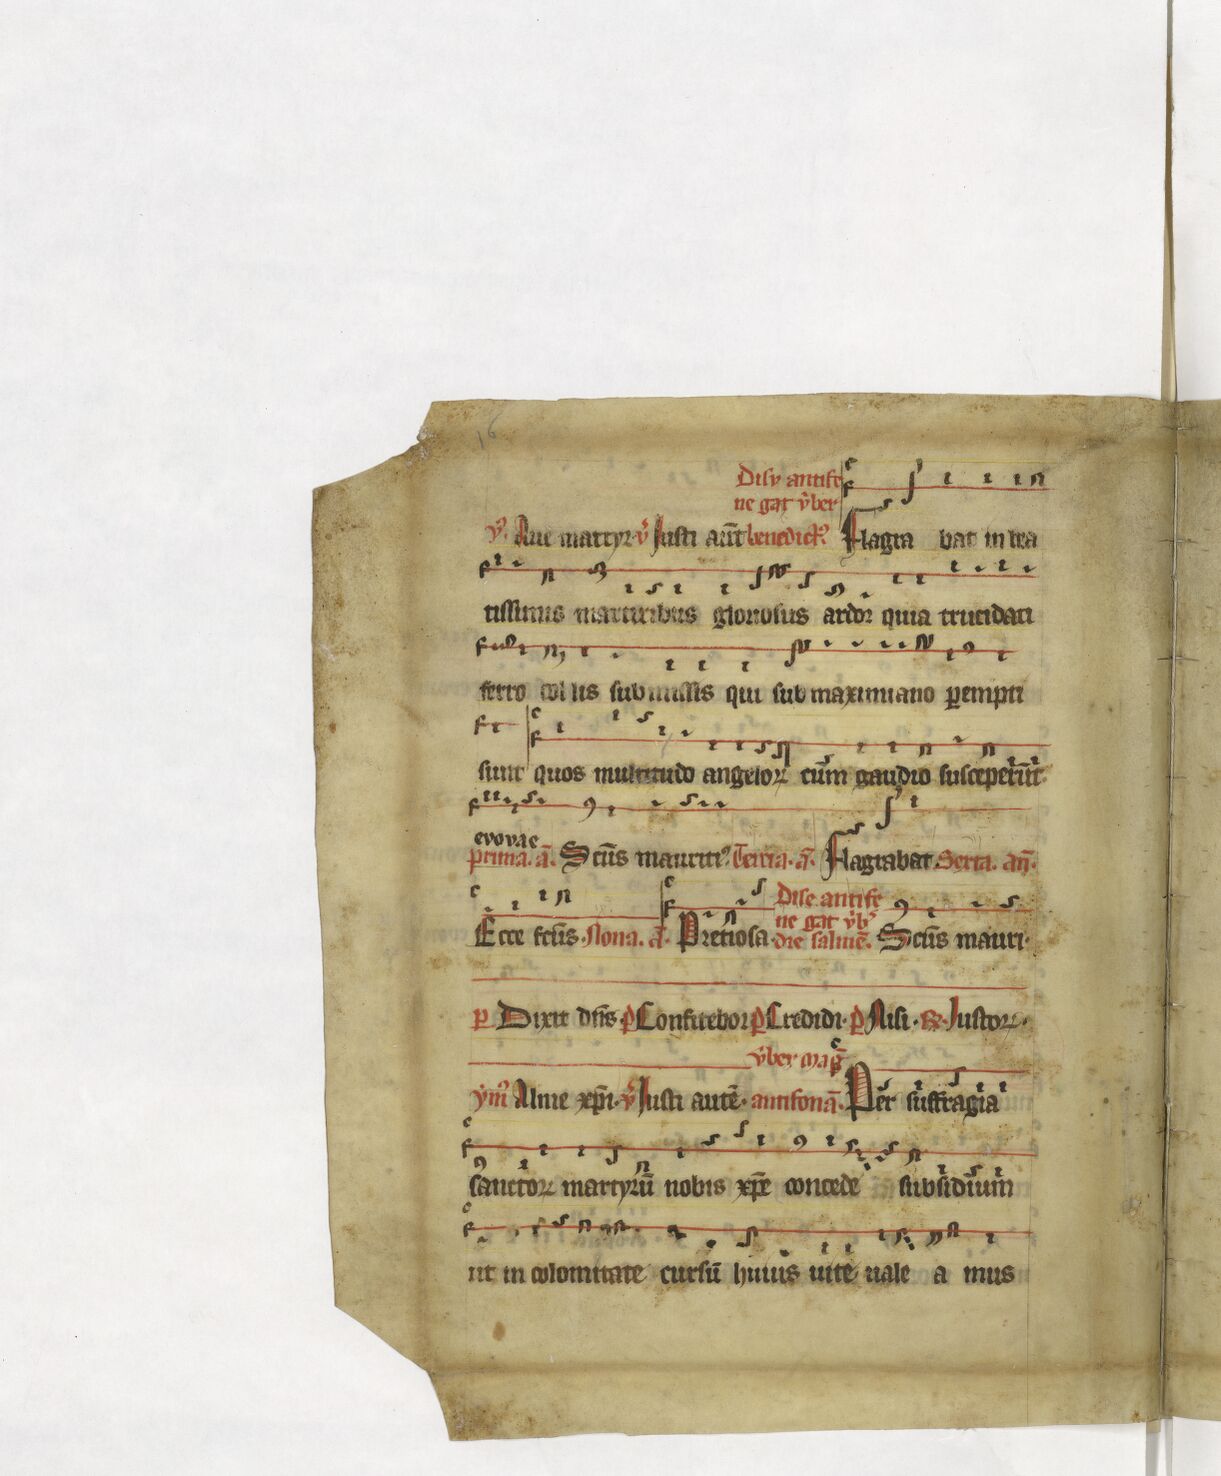 16
Disv antife
ne gat v̄ber
Aue martyr v̄ Iusti aūt benedictꝰ Flagra bat in bea
tissimis martiribus gloriosus ardor quia trucidati
ferro collis submissis qui sub maximiano ꝑempti
sunt quos multitudo angeloꝝ cūm gaudio susceperūt
evovae
prima. a. Scūs mauritiꝰ Tertia. a. Flagrabat Sexta. an̄.
Dise antife
ne gat v̄b
Ecce scūs Nona. a. Pretiosa die salme. Scūs mauri
p Dixit dn̄s p Confitebor p Credidi p Nisi R Iustoꝝ
v̄ber mag
ymꝰ Alme xp̄i v̄ Iusti autē antifona Per suffragia
sanctoꝝ martyrū nobis xp̄e concede subsidium
ut in colomitate cursū huius uite uale a mus